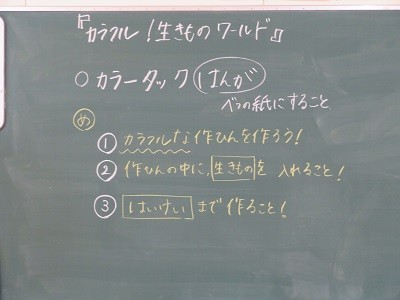 『カラフル！生きものワールド』
○ カラータック はんが
べつの紙にすること
め
① カラフルな作ひんを作ろう！
② 作ひんの中に、生きものを 入れること！
③ はいけいまで作ること！